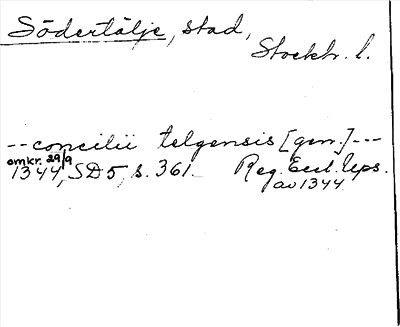 Södertälje, stad,
Stockh. l.
-- concilii telgensis [gen.] ---
omkr. 29/9
1344, SD 5, s. 361. Reg. Eccl. Ups.
av 1344.